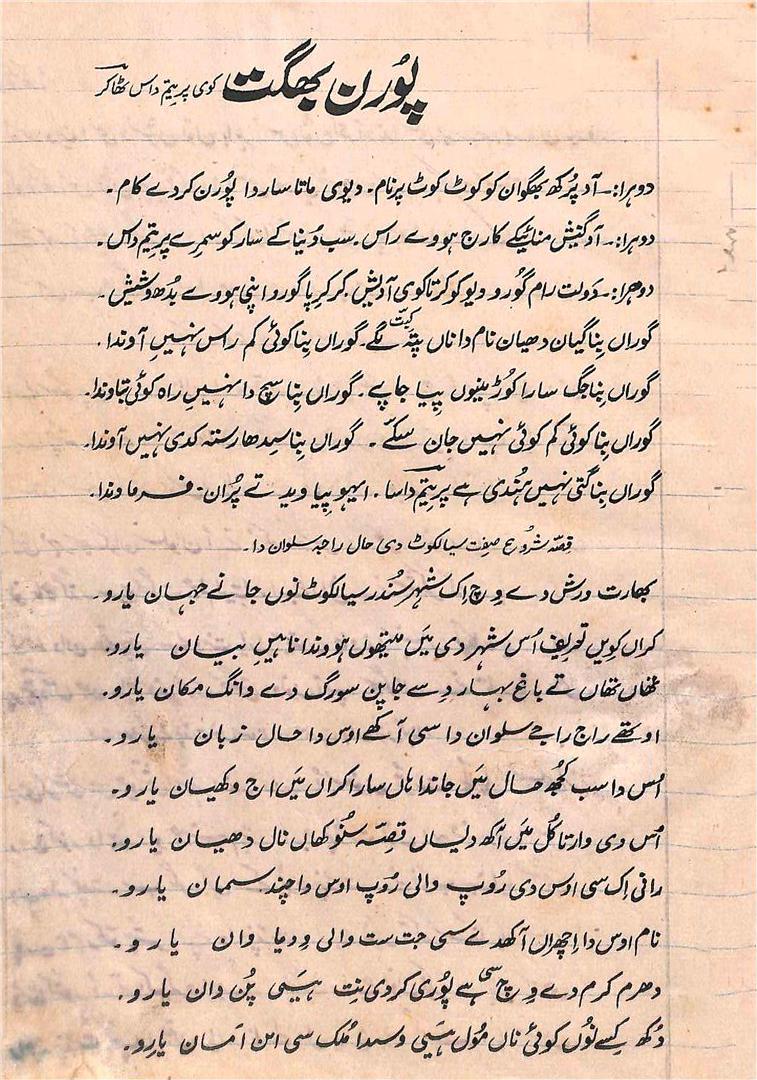 پُورن بھگت کوی پریتم داس ٹھاکر
دوہرا:۔ آد پُرکھ بھگوان کو کوٹ کوٹ پرنام۔ دیوی ماتا ساردا پُورن کردے کام۔
دوہرا:۔ آد گنیش منائیکے کارج ہووے راس۔ سب دُنیا کے سار کو سمرے پریتم داس۔
دوہرا:۔ دولت رام گُورو دیو کو کرتا کوی آدیش۔ کر کرپا گورو اپنی ہووے بُدھ وشیش۔
گوراں بِنا گیان دھیان نام دا ناں پتہ کِتّے لگے۔ گوراں بِنا کوئی کم راس نہیں آوندا۔
گوراں بِنا جگ سارا کُوڑ مینوں پیا جاپے۔ گوراں بِنا سچ دا نہیں راہ کوئی بتاوندا۔
گوراں بِنا کوئی کم کوئی نہیں جان سکّے۔ گوراں بِنا سیدھا رستہ کدی نہیں آوندا۔
گوراں بِنا گتی نہیں ہُندی ہے پریتم داسا۔ ایہو پیا وید تے پُران۔ فرماوندا۔
قصّہ شروع صِفت سیالکوٹ دی حال راجہ سلوان دا۔
بھارت ورش دے وِچ اِک شہر سُندر سیالکوٹ نُوں جانے جہان یارو۔
کراں کویں تعریف اُس شہر دی مَیں میتھوں ہووندا ناہیں بیان یارو۔
تھاں تھاں تے باغ بہار دِسے جاپن سورگ دے وانگ مکان یارو۔
اوتھے راج راجے سلوان دا سی آکھے اوس دا حال زبان یارو۔
اُس دا سب کُجھ حال مَیں جاندا ہاں سارا کراں مَیں اج وکھیان یارو۔
اُس دی وارتا کُل مَیں آکھ دیاں قِصّہ سُنو کھاں نال دھیان یارو۔
رانی اِک سی اوس دی رُوپ والی رُوپ اوس دا چند سمان یارو۔
نام اوس دا اِچھراں آکھدے سی جت ست والی وِدیا وان یارو۔
دھرم کرم دے وِچ سی ہے پُوری کردی نِت ہیسی پُن دان یارو۔
دُکھ کِسے نُوں کوئی ناں مُول ہیسی وسدا مُلک سی امن اَمان یارو۔